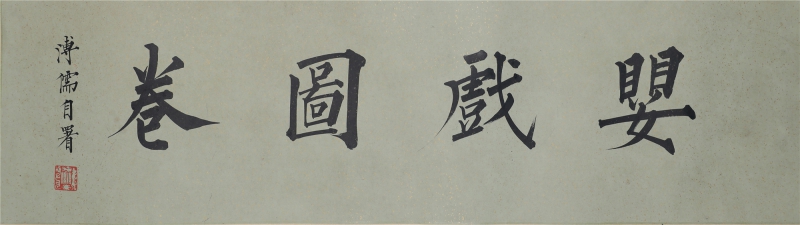 嬰戲圖卷
溥儒自署